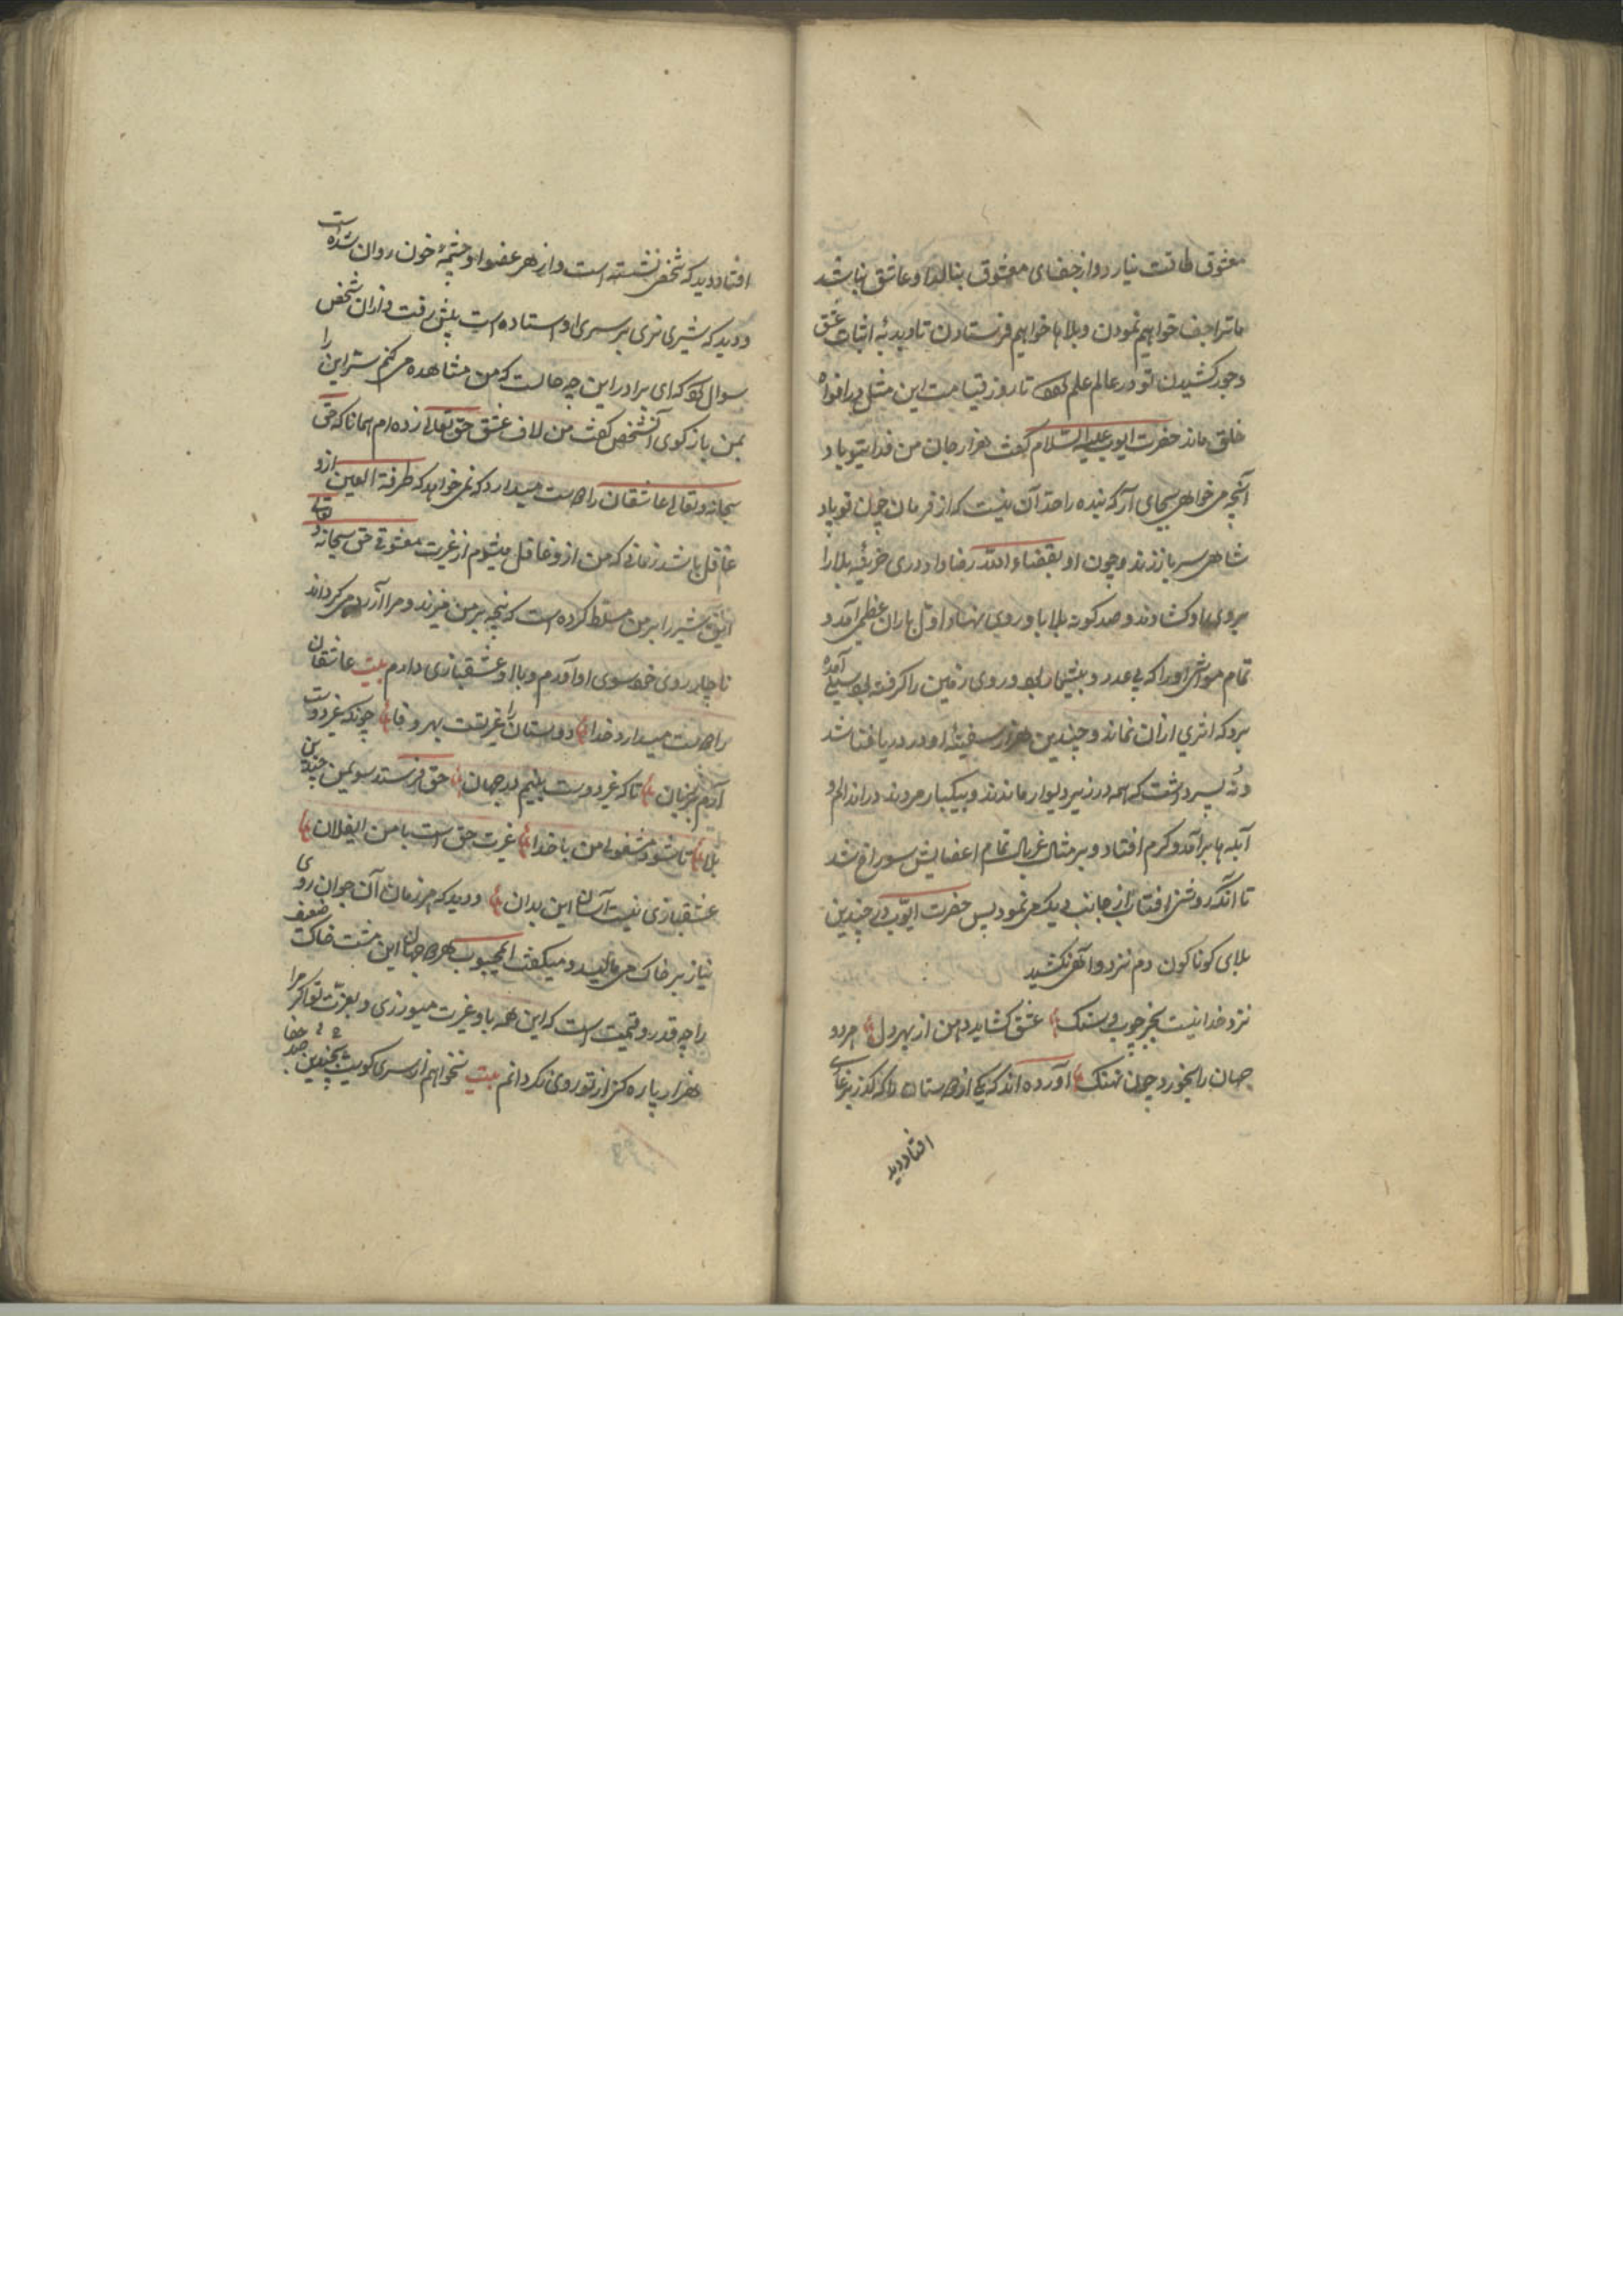 معشوق طاقت نیارد و از جفای معشوق بنالد او عاشق نباشد
ما ترا جفا خواهیم نمودن و بلاها خواهیم فرستادن تا دبدبهٔ اثبات عشق
و جور کشیدن تو در عالم علم تا روز قیامت این مثل در افواه
خلق ماند حضرت ایوب علیه السلام گفت هزار جان من فدای تو باد
آنچه می خواهی بجای آر که بنده را حد آن نیست که از فرمان چون تو باد
شاهی سر باز زند و چون او بقضاء الله رضا داد دری خزینه بلا را
بروی او کشادند و صد کونه بلا باو روی نهاد اول باران عظیم آمد و
تمام مواشی او را که بی عدد و بیشمار بود و روی زمین را کرفته بود سیلی آمده
برد که اثری ازان نماند و چندین هزار سفینهٔ او در دریا فنا شد
و نه پسر داشت که همه در زیر دیوار ماندند و بیکبار مردند در اندام او
آبله ها برآمد و کرم افتاد و بر مثال غربال تمام اعضایش سوراخ شد
تا آنکه روشنی افتاب از جانب دیگر می نمود پس حضرت ایوب در چندین
بلای کوناکون دم نزد و آهی نکشید
نزد خدا نیست بجز چوب و سنک عشق کشاید دهن از بهر دل هر دو
جهان را بخورد چون نهنک آورده اند که یکی از دوستان را که گذر بر غاری
افتاد دید
افتاد دید که شخصی نشسته است و از هر عضو او چشمهٔ خون روان شده است
و دید که شیری نری بر سری او استاده است پیش رفت و ازان شخص
سوال کرد که ای برادر این چه حالت که من مشاهده می کنم سر این را
بمن باز کوی آن شخص گفت من لاف عشق حق تعالی زده ام همانا که حق
سبحانه و تعالی عاشقان را دوست میدارد که نمی خواهد که طرفة العین ازو
غافل باشد زمانی که من ازو غافل میشوم از غیرت معشوقی حق سبحانه و تعالی
این شیر را بر من مسلط کرده است که پنجه بر من میزند و مرا آزرده می کرداند
ناچار روی خود سوی او آورم و با او عشقبازی دارم بیت عاشقان
را دوست میدارد خدا دوستان را غیرتست بهر وفا چونکه غیر دوست
آرم بر زبان تا که غیر دوست بینم در جهان حق فرستد سوی من چندین
بلا تا شود مشغولی من با خدا غیرت حق است با من ای فلان
عشقبازی نیست آسان این بدان و دید که هر زمان آن جوان روی
نیاز بر خاک می مالید و میکفت ای محبوب هر دو جهان این مشت خاک ضعیف
را چه قدر و قیمت است که این همه باو غیرت میورزی و بعزت تو اکر مرا
هزار پاره کنی از تو روی نکردانم بیت نخواهم از سری کویت بچندین صد جفا